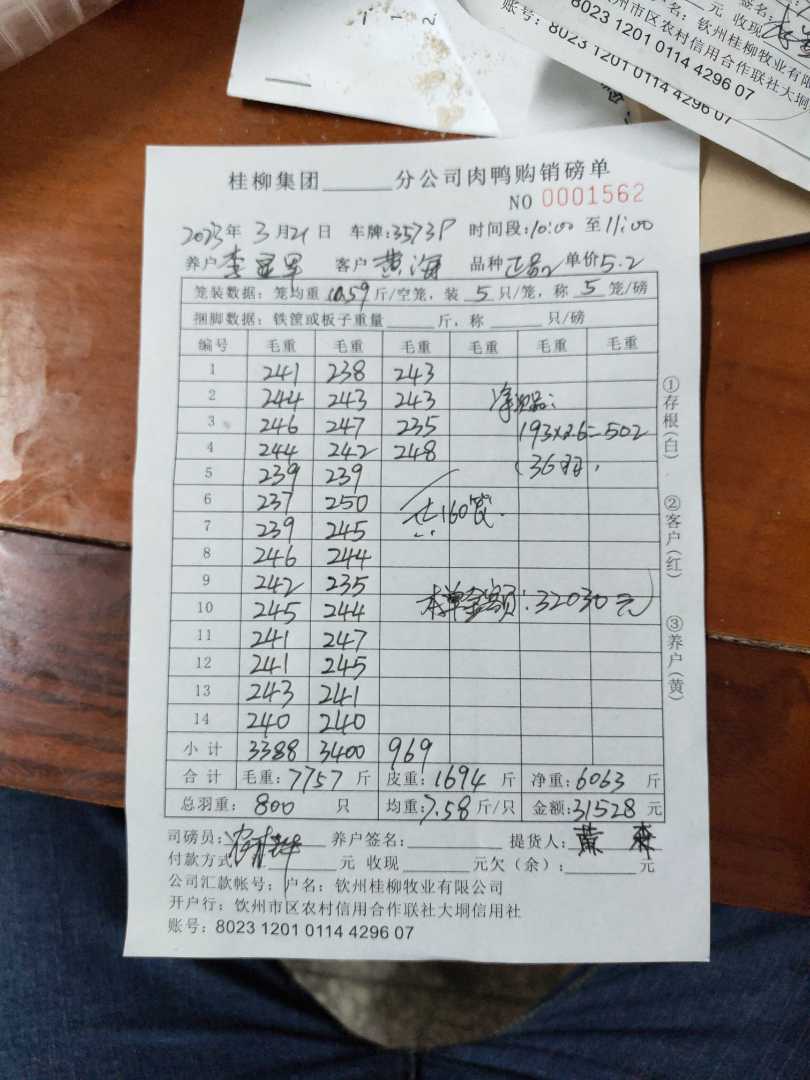 元 收现
钦州桂柳牧业有限公
钦州市区农村信用合作联社大垌
账号：8023 1201 0114 4296 07
账号：8023 1201 0114 4296 07
桂柳集团______分公司肉鸭购销磅单
NO 0001562
2023年 3月21日 车牌:3573P 时间段:10:00 至11:00
养户 客户 黄海 品种 正品2 单价5.2
笼装数据：笼均重10.59斤/空笼，装 5 只/笼，称 5 笼/磅
捆脚数据：铁篚或板子重量______斤，称______只/磅
编号 毛重 毛重 毛重 毛重 毛重 毛重
1 241 238 243
2 244 243 243
3 246 247 235 193×2.6=502
4 244 242 248 (36羽)
5 239 239
6 237 250
7 239 245 共160笼.
8 246 244
9 242 235
10 245 244 本单金额:32030元
11 241 247
12 241 245
13 243 241
14 240 240
小计 3388 3400 969
合计 毛重:7757斤 皮重:1694斤 净重:6063斤
总羽重：800 只 均重:7.58斤/只 金额:31528元
司磅员: 养户签名:______ 提货人:
付款方式 ______元 收现 ______元欠（余）:______元
公司汇款帐号：户名：钦州桂柳牧业有限公司
开户行：钦州市区农村信用合作联社大垌信用社
账号：8023 1201 0114 4296 07
①存根(白)
②客户(红)
③养户(黄)